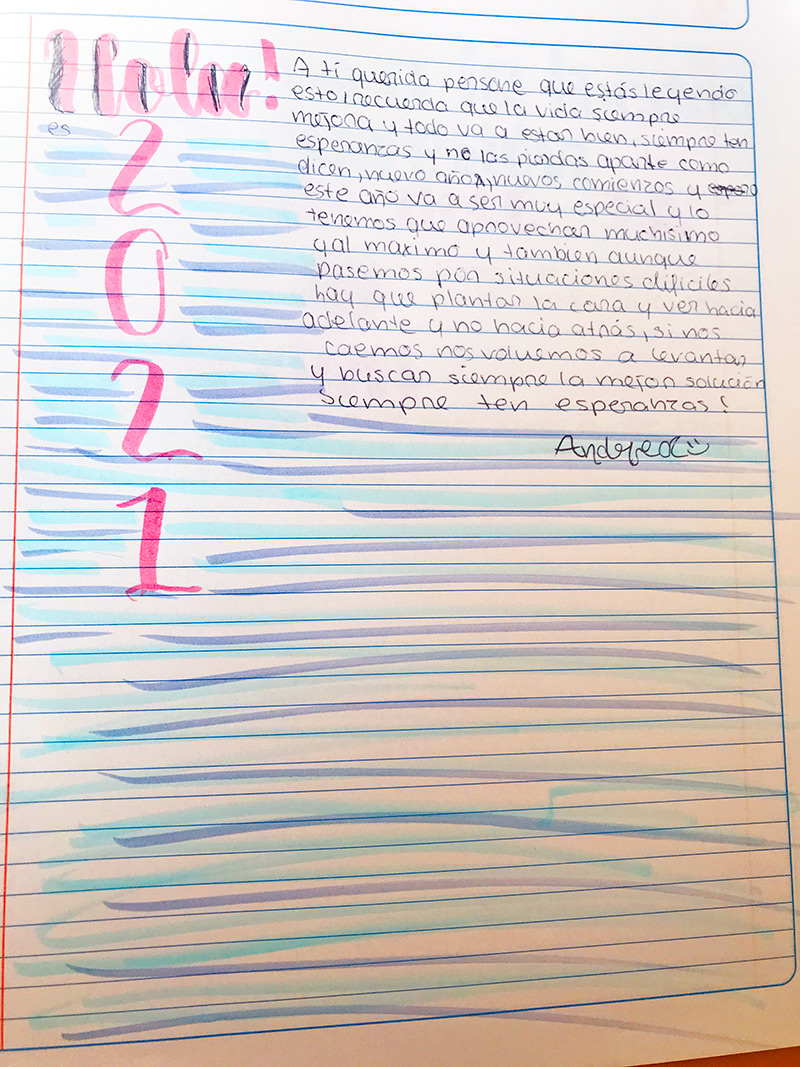 Hola!
A ti querida persona que estás leyendo
esto, recuerda que la vida siempre
mejora y todo va a estar bien, siempre ten
esperanzas y no las pierdas aparte como
dicen, nuevo año, nuevos comienzos y
este año va a ser muy especial y lo
tenemos que aprovechar muchisimo
y al maximo y tambien aunque
pasemos por situaciones dificiles
hay que plantar la cara y ver hacia
adelante y no hacia atrás, si nos
caemos nos volvemos a levantar
y buscar siempre la mejor solución
siempre ten esperanzas!
Andrea
es
2
0
2
1